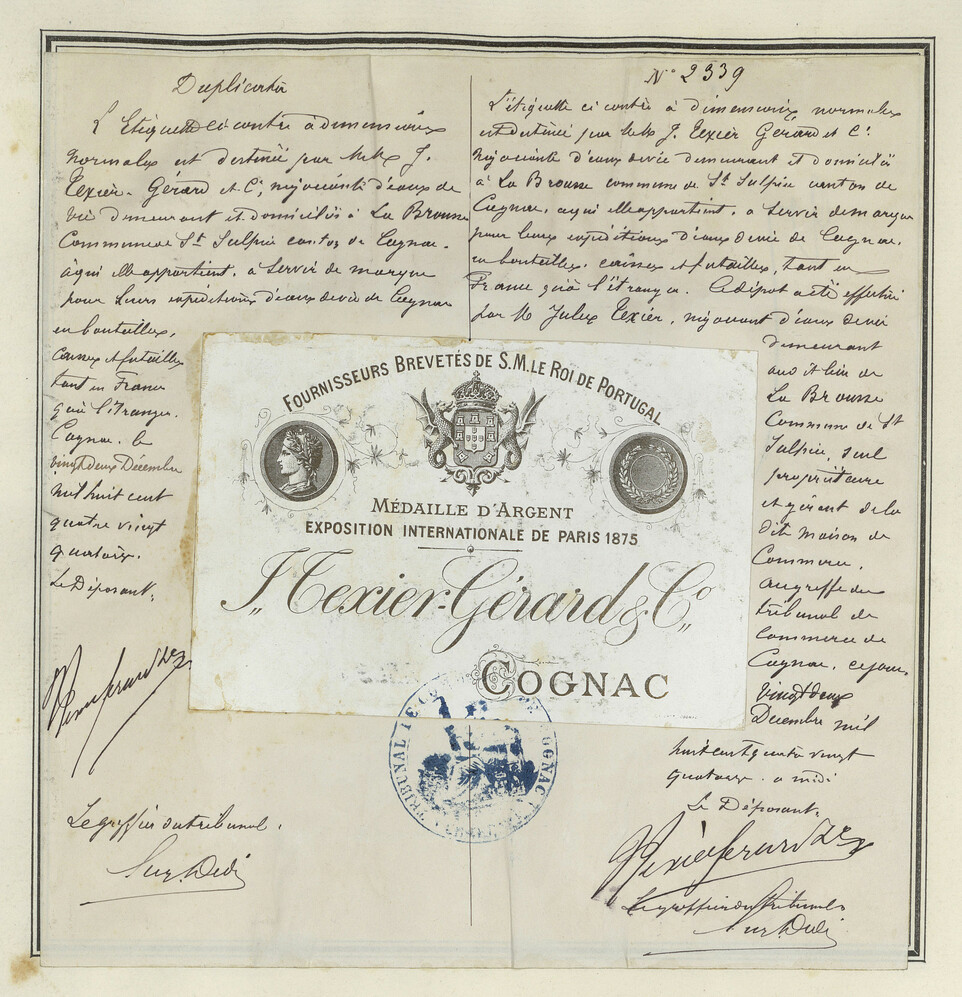 Duplicata
L'Etiquette ci contre à dimensions
normales est destinée par M.M. J.
Texier-Gérard et Cie, négociants d'eaux de
vie demeurant et domiciliés à La Brousse
Commune de St Sulpice canton de Cognac.
à qui elle appartient, a servir de marque
pour leurs expéditions d'eaux de vie de Cognac
en bouteilles,
caisses et futailles
tant en France
qu'à l'étranger.
Cognac. le
vingt deux Décembre
mil huit cent
quatre vingt
quatorze.
Le Déposant,
Le greffier du tribunal.
N° 2339
L'étiquette ci contre à dimensions normales
est destinée par M.M. J. Texier Gérard et Cie
négociants d'eaux de vie demeurant et domiciliés
à La Brousse commune de St Sulpice canton de
Cognac, a qui elle appartient, a servir de marque
pour leurs expéditions d'eaux de vie de Cognac,
en bouteilles, caisses et futailles, tant en
France qu'à l'étranger. Ce dépot a été effectué
par M. Jules Texier, négociant d'eaux de vie
demeurant
au dit lieu de
La Brousse
Commune de St
Sulpice, seul
propriétaire
et gérant de la
dite maison de
Commerce,
au greffe du
tribunal de
Commerce de
Cognac, ce jour
vingt deux
Décembre mil
huit cent quatre vingt
quatorze. a midi
Le Déposant,
Le greffier du tribunal
FOURNISSEURS BREVETÉS DE S.M. LE ROI DE PORTUGAL
MÉDAILLE D'ARGENT
EXPOSITION INTERNATIONALE DE PARIS 1875
J. Texier-Gérard & Co.
COGNAC
TRIBUNAL DE CO